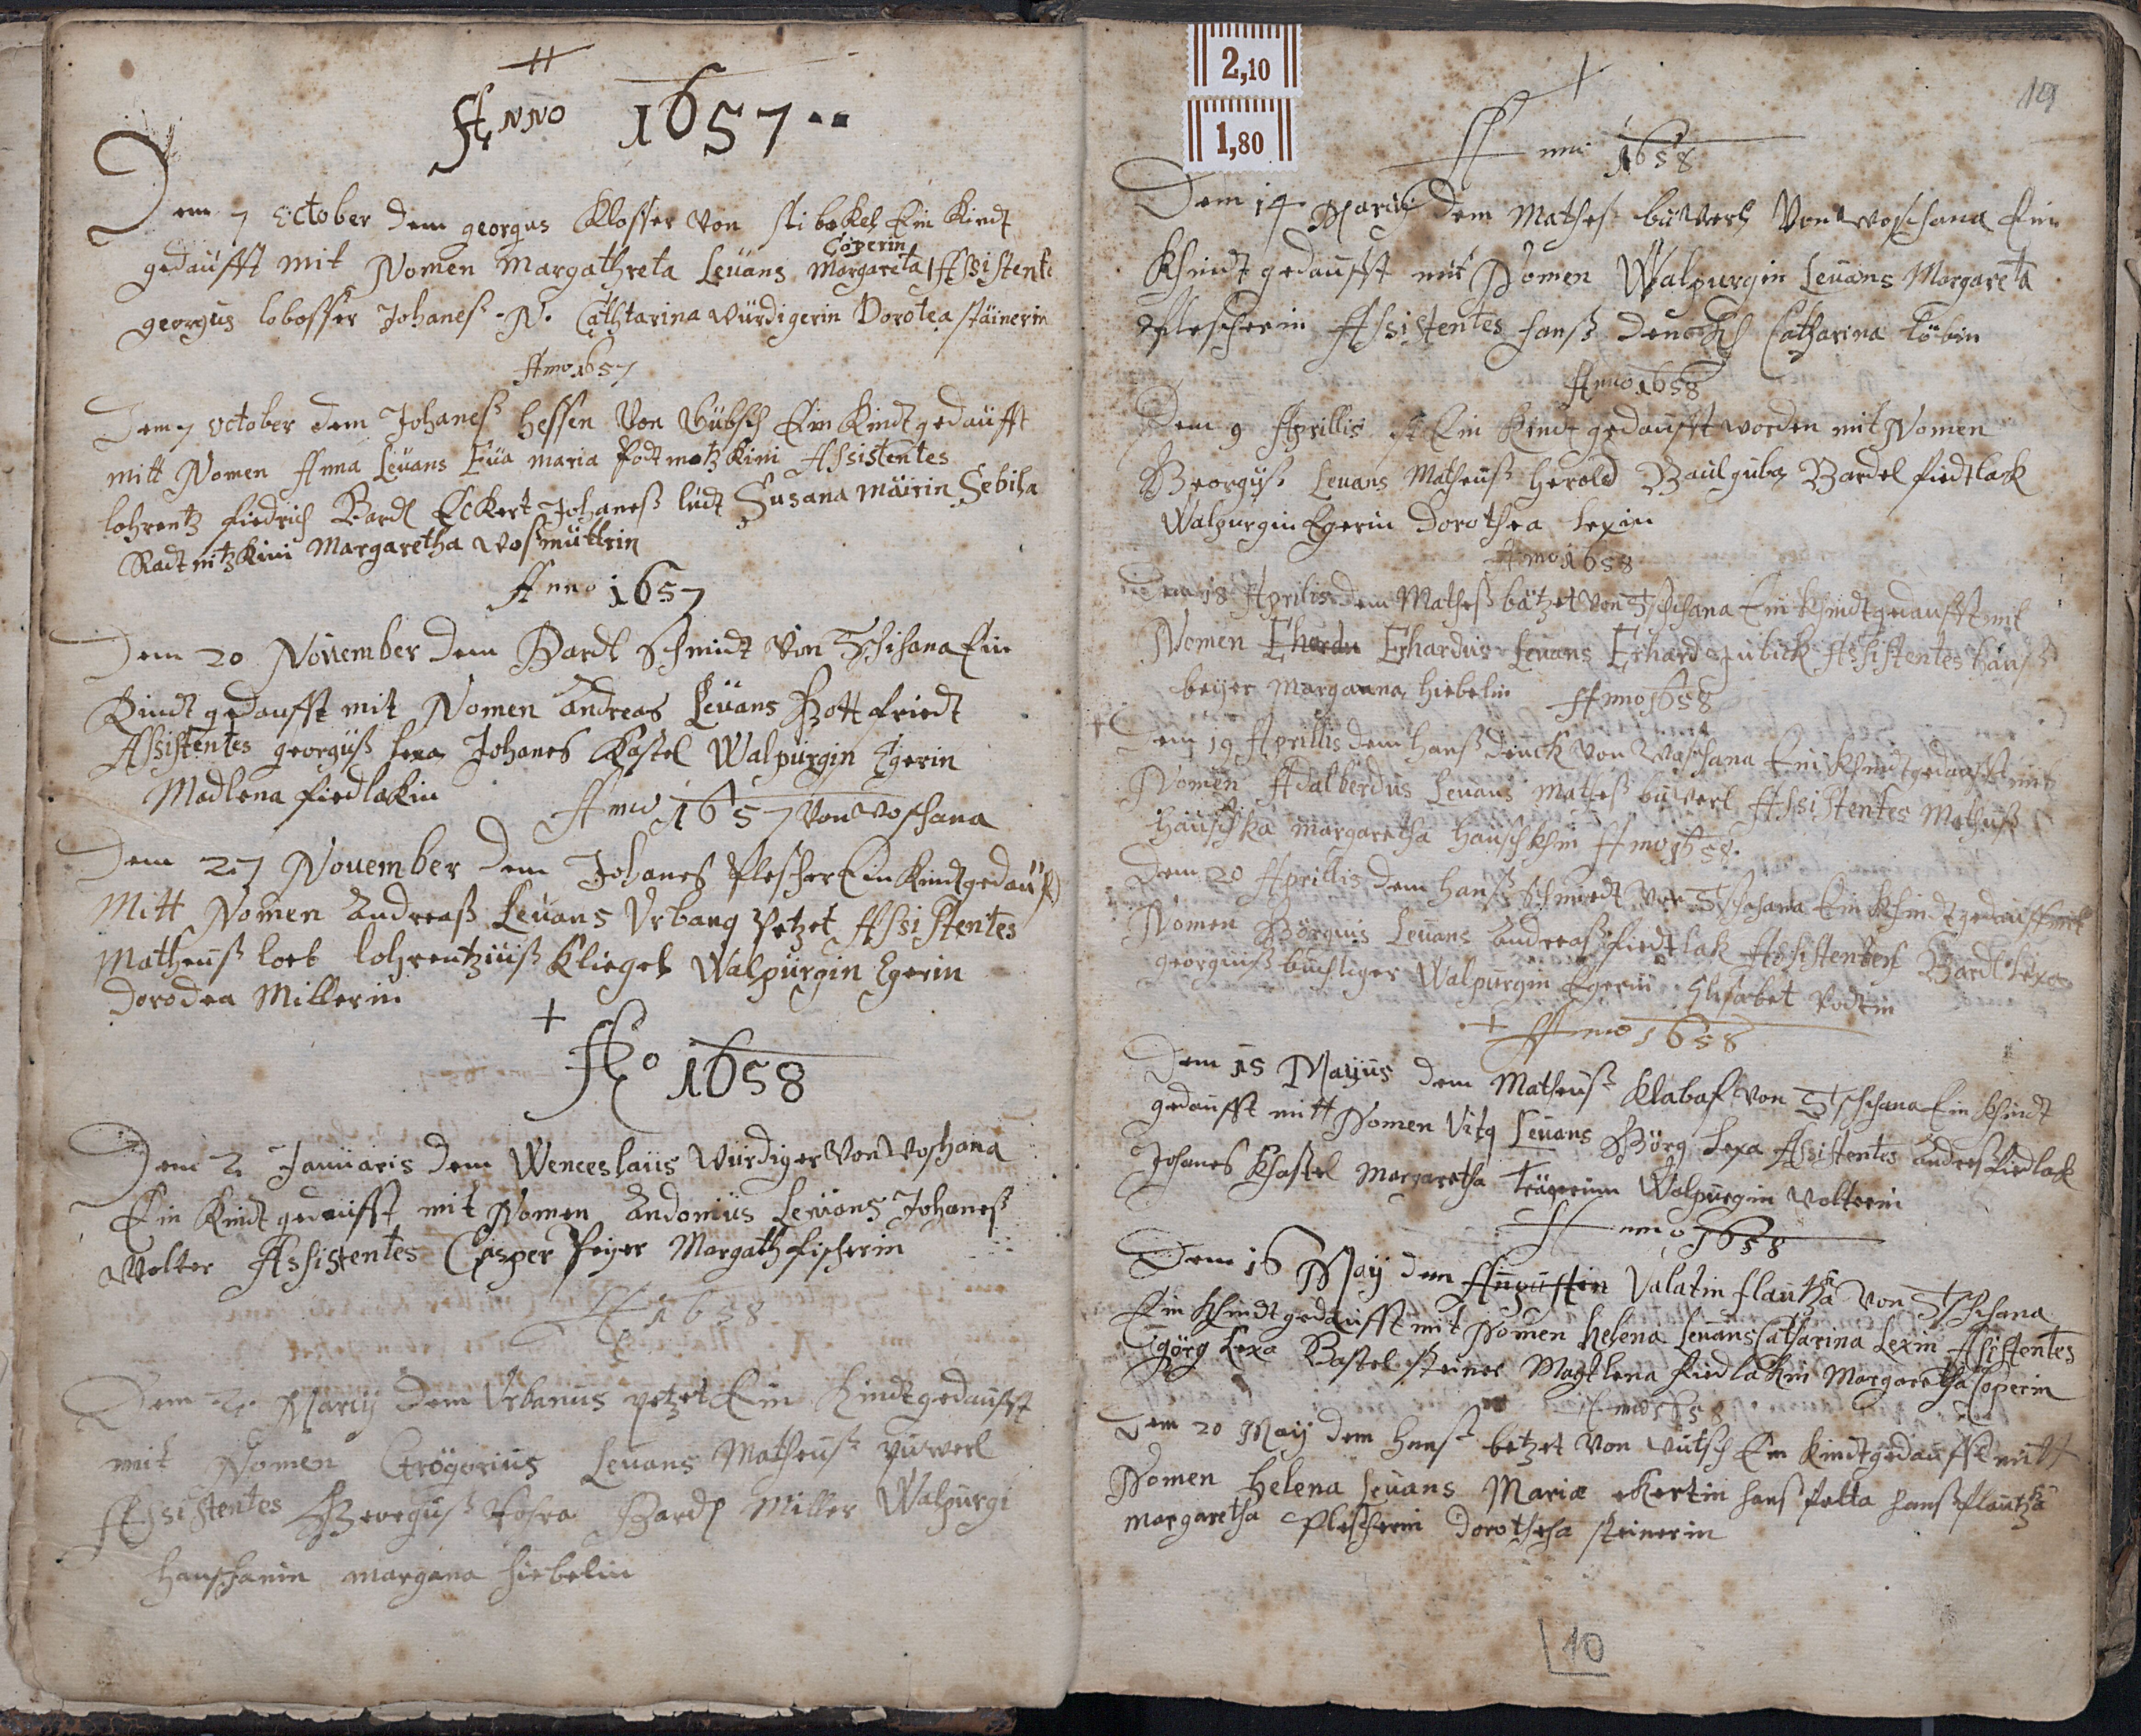 Anno 1657
Dem 7 October dem georgus Klosser von Ein Kindt
Coperin
gedaufft mit Nomen Margathreta Leuans Margareta Assistente
georgus lobosser Johaneß N. Cathtarina würdigerin Dorotea stäinerin
Anno 1657
Dem 7 october dem Johaneß hessen Von Ein Kindt gedaufft
mitt Nomen Anna Leuans Eua maria Podtmotzkini Assistentes
lohrentz fiedrich Bardl Eckert Johaneß lüdt Susana mäirin Sebila
Radtnitzkini Margaretha Woßmüttrin
Anno 1657
Dem 20 Nouember dem Bardl Schmidt Von Tschihana Ein
Kindt gedaufft mit Nomen Andreas Leuans Gottfriedt
Assistentes georguß Lexa Johanes Kastel Walpurgin Egerin
Madlena fiedlakin
Anno 1657 Von Woschana
Dem 27 Nouember dem Johanes Plescher Ein Kindt gedaufft
Mitt Nomen Andreaß Leuans Vrbang Petzet Assistentes
Matheuß loeb lohrentziuß Kliegel Walpurgin Egerin
dorodea Millerin
Ao 1658
Dem 2 Januaris dem Wenceslaus Würdiger Von Woschana
Ein Kindt gedaufft mit Nomen Andonius Leuans Johaneß
Wolter Assistentes Casper Peyer Margath fischerin
A 1658
Dem 2. Marcij dem Vrbanus petzet Ein Kindt gedaufft
mit Nomen Grögorius Leuans Matheuß puwerl
Assistentes Georguß Bardl Miller Walpurgi
margana hiebelin
19
2,10
1,80
Anno 1658
Dem 14 Marcij dem Matheß büwerl Von Woschana Ein
Khindt gedaufft mit Nomen Walpurgin Leuans Margareta
Plescherin Assistentes hanß denckh Catharina Löbin
Anno 1658
Dem 9 Aprillis ist Ein Kindt gedaufft worden mit Nomen
Georguß Leuans Matheuß herold Bardel fiedtlack
Walpurgin Egerin Dorothea Lexin
Anno 1658
Dem 18 Aprilis dem Matheß bätzet Von Tschihana Ein Khindt gedaufft mit
Nomen Eherdu Erhardus Leuans Erhard Assistentes hanß
beyer Margarana hiebelin Anno 1658
Dem 19 Aprillis dem hanß denck Von Woschana Ein Khindt gedaufft mit
Nomen Adalberdus Leuans Matteß büwerl Assistentes Matheuß
hauschka margaretha hauschkhin Anno 1658
Dem 20 Aprillis dem hanß schmiedt Von Tschihana Ein Khindt gedaufft mit
Nomen Görgius Leuans Andreaß fiedtlak Assistentes Bardl Lexa
georgiuß buchtiger Walpurgin Egerin Elisabet Podtin
Anno 1658
Dem 15 Mayus dem Matheuß Klabaß Von Tschihana Ein Khindt
gedaufft mitt Nomen Vitg Leuans Görg Lexa Assistentes Andreß fiedlak
Johanes Khastel Margaretha Trägerinn Walpurgin Wolterin
Anno 1658
Dem 16 May dem Augustin Valatin flautzka Von Tschihana
Ein Khindt gedaufft mit Nomen helena Leuans Catharina Lexin Assistentes
görg Lexa Bastel Steiner Magtlena fiedlakin Margaretha Coperin
Anno 1658
Dem 20 May dem hanß betzet Von Ein Kindt gedaufft mitt
Nomen helena Leuans Maria ekertin hanß Palta hanß Plautzka
margaretha Plescherin dorothea steinerin
10